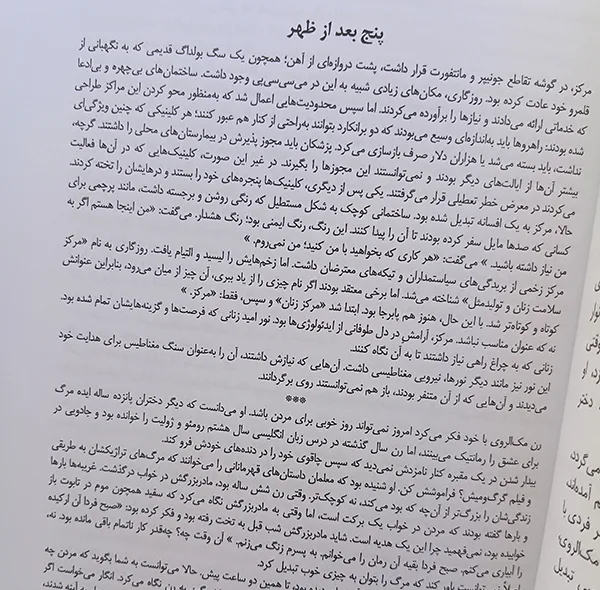 پنج بعد از ظهر
مرکز، در گوشه تقاطع جونیپر و مانتفورت قرار داشت، پشت دروازه‌ای از آهن؛ همچون یک سگ بولداگ قدیمی که به نگهبانی از
قلمرو خود عادت کرده بود. روزگاری، مکان‌های زیادی شبیه به این در می‌سی‌سی‌پی وجود داشت. ساختمان‌های بی‌چهره و بی‌ادعا
که خدماتی ارائه می‌دادند و نیازها را برآورده می‌کردند. اما سپس محدودیت‌هایی اعمال شد که به‌منظور محو کردن این مراکز طراحی
شده بودند: راهروها باید به‌اندازه‌ای وسیع می‌بودند که دو برانکارد بتوانند به‌راحتی از کنار هم عبور کنند؛ هر کلینیکی که چنین ویژگی‌ای
نداشت، باید بسته می‌شد یا هزاران دلار صرف بازسازی می‌کرد. پزشکان باید مجوز پذیرش در بیمارستان‌های محلی را داشتند. گرچه،
بیشتر آن‌ها از ایالت‌های دیگر بودند و نمی‌توانستند این مجوزها را بگیرند. در غیر این صورت، کلینیک‌هایی که در آن‌ها فعالیت
می‌کردند در معرض خطر تعطیلی قرار می‌گرفتند. یکی پس از دیگری، کلینیک‌ها پنجره‌های خود را بستند و درهایشان را تخته کردند.
حالا، مرکز به یک افسانه تبدیل شده بود. ساختمانی کوچک به شکل مستطیل که رنگی روشن و برجسته داشت، مانند پرچمی برای
کسانی که صدها مایل سفر کرده بودند تا آن را پیدا کنند. این رنگ، رنگ ایمنی بود؛ رنگ هشدار. می‌گفت: «من اینجا هستم اگر به
من نیاز داشته باشید. » می‌گفت: «هر کاری که بخواهید با من کنید؛ من نمی‌روم. »
مرکز زخمی از بریدگی‌های سیاستمداران و تیکه‌های معترضان داشت. اما زخم‌هایش را لیسید و التیام یافت. روزگاری به نام «مرکز
سلامت زنان و تولیدمثل» شناخته می‌شد. اما برخی معتقد بودند اگر نام چیزی را از یاد ببری، آن چیز از میان می‌رود، بنابراین عنوانش
کوتاه و کوتاه‌تر شد. با این حال، هنوز هم پابرجا بود. ابتدا شد «مرکز زنان» و سپس، فقط: «مرکز. »
نه که عنوان مناسب نباشد. مرکز، آرامش در دل طوفانی از ایدئولوژی‌ها بود. نور امید زنانی که فرصت‌ها و گزینه‌هایشان تمام شده بود.
زنانی که به چراغ راهی نیاز داشتند تا به آن نگاه کنند.
این نور نیز مانند دیگر نورها، نیرویی مغناطیسی داشت. آن‌هایی که نیازش داشتند، آن را به‌عنوان سنگ مغناطیس برای هدایت خود
می‌دیدند و آن‌هایی که از آن متنفر بودند، باز هم نمی‌توانستند روی برگردانند.
***
رن مک‌الروی با خود فکر می‌کرد امروز نمی‌تواند روز خوبی برای مردن باشد. او می‌دانست که دیگر دختران پانزده ساله ایده مرگ
برای عشق را رمانتیک می‌بینند، اما رن سال گذشته در درس زبان انگلیسی سال هشتم رومئو و ژولیت را خوانده بود و جادویی در
بیدار شدن در یک مقبره کنار نامزدش نمی‌دید که سپس چاقوی خود را در دنده‌های خودش فرو کند.
و فیلم گرگ‌ومیش؟ فراموشش کن. او شنیده بود که معلمان داستان‌های قهرمانانی را می‌خوانند که مرگ‌های تراژیکشان به طریقی
زندگی‌شان را بزرگ‌تر از آن‌چه که بود می‌کند، نه کوچک‌تر. وقتی رن شش ساله بود، مادربزرگش در خواب درگذشت. غریبه‌ها بارها
و بارها گفته بودند که مردن در خواب یک برکت است، اما وقتی به مادربزرگش نگاه می‌کرد که سفید همچون موم در تابوت باز
خوابیده بود، نمی‌فهمید چرا این یک هدیه است. شاید مادربزرگش شب قبل به تخت رفته بود و فکر کرده بود: «صبح فردا آن ارکیده
را آبیاری می‌کنم. صبح فردا بقیه آن رمان را می‌خوانم. به پسرم زنگ می‌زنم. » آن وقت چه؟ چه‌قدر کار ناتمام باقی مانده بود. نه،
اصلاً نمی‌توانست باور کند که مرگ را بتوان به چیزی خوب تبدیل کرد.